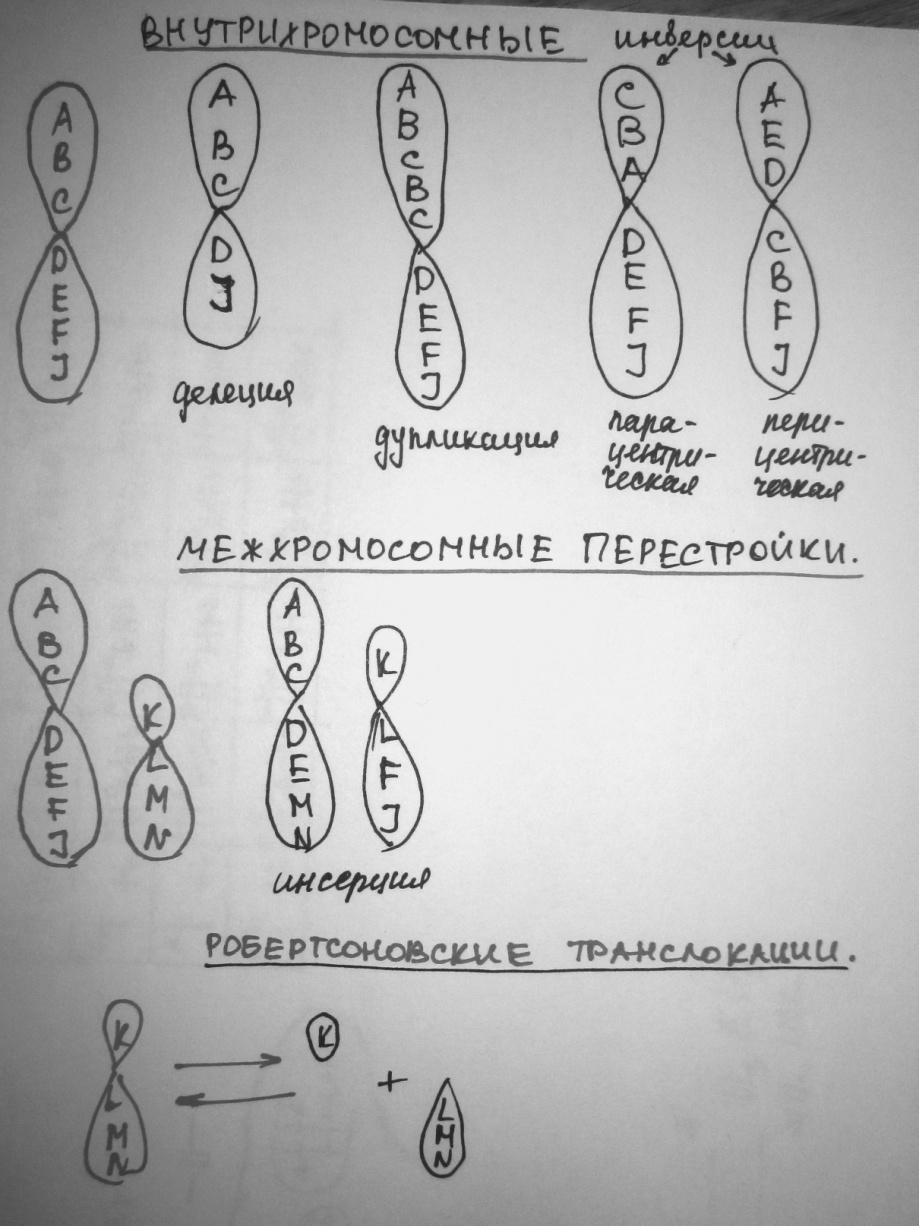 ВНУТРИХРОМОСОМНЫЕ инверсии
A B C D E F J
A B C D J
A B C B C D E F J
C B A D E F J
A E D C B F J
делеция
дупликация
пара-
центри-
ческая
пери-
центри-
ческая
МЕЖХРОМОСОМНЫЕ ПЕРЕСТРОЙКИ.
A B C D E F J
K L M N
A B C D E M N
K L F J
инсерция
РОБЕРТСОНОВСКИЕ ТРАНСЛОКАЦИИ.
K L M N
K
+
L M N